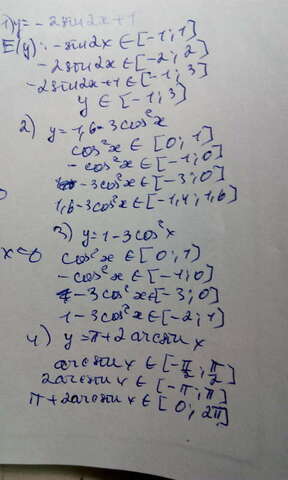 1) y = - 2sin2x+1
E(y): -sin2x ∈ [-1; 1]
-2sin2x ∈ [-2; 2]
-2sin2x+1 ∈ [-1; 3]
y ∈ [-1; 3]
2) y = 1,6 - 3cos²x
cos²x ∈ [0; 1]
-cos²x ∈ [-1; 0]
-3cos²x ∈ [-3; 0]
1,6 - 3cos²x ∈ [-1,4; 1,6]
3) y = 1 - 3cos²x
x = 0 cos²x ∈ [0; 1]
-cos²x ∈ [-1; 0]
-3cos²x ∈ [-3; 0]
1 - 3cos²x ∈ [-2; 1]
4) y = π + 2arcsin x
arcsin x ∈ [-π/2; π/2]
2arcsin x ∈ [-π; π]
π + 2arcsin x ∈ [0; 2π]